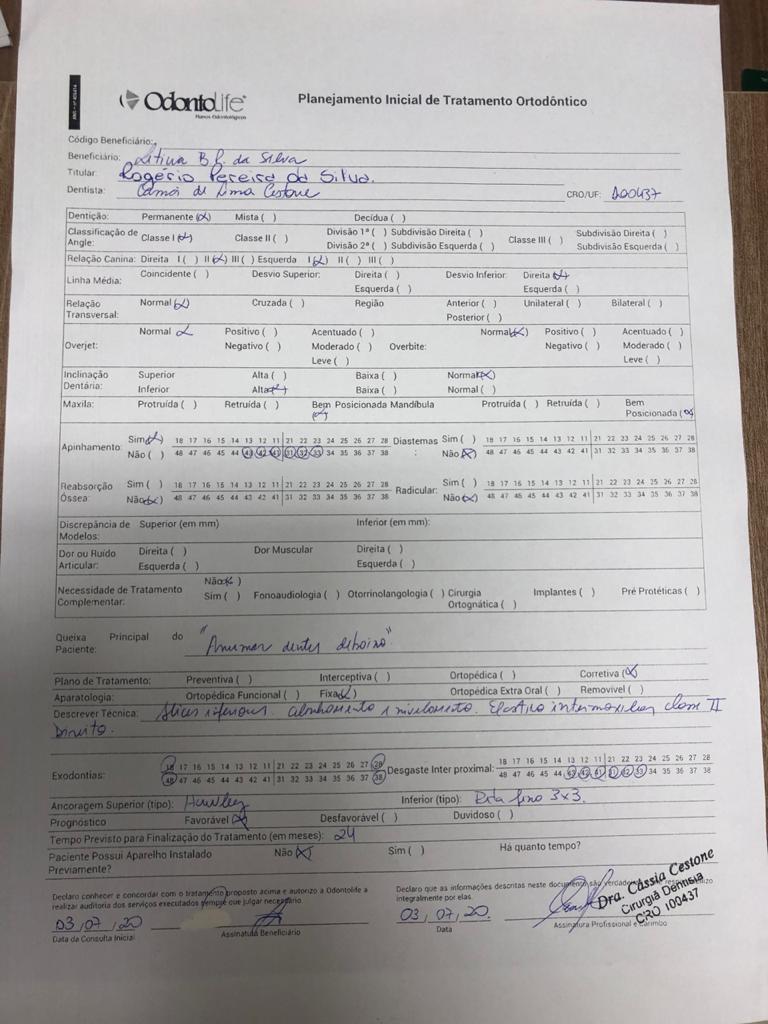 OdontoLife
Planos Odontológicos
Planejamento Inicial de Tratamento Ortodôntico
Código Beneficiário:
Beneficiário: B P. da Silva
Titular: Rogério Pereira da Silva.
Dentista: de Lima Cestone CRO/UF: 100437
Dentição: Permanente (x) Mista ( ) Decídua ( )
Classificação de Angle: Classe I (x) Classe II ( ) Divisão 1ª ( ) Subdivisão Direita ( ) Classe III ( ) Subdivisão Direita ( )
Divisão 2ª ( ) Subdivisão Esquerda ( ) Subdivisão Esquerda ( )
Relação Canina: Direita I ( ) II (x) III ( ) Esquerda I (x) II ( ) III ( )
Linha Média: Coincidente ( ) Desvio Superior: Direita ( ) Desvio Inferior: Direita (x)
Esquerda ( ) Esquerda ( )
Relação Transversal: Normal (x) Cruzada ( ) Região Anterior ( ) Unilateral ( ) Bilateral ( )
Posterior ( )
Overjet: Normal x Positivo ( ) Acentuado ( ) Overbite: Normal (x) Positivo ( ) Acentuado ( )
Negativo ( ) Moderado ( ) Negativo ( ) Moderado ( )
Leve ( ) Leve ( )
Inclinação Dentária: Superior Alta ( ) Baixa ( ) Normal (x)
Inferior Alta (x) Baixa ( ) Normal ( )
Maxila: Protruída ( ) Retruída ( ) Bem Posicionada (x) Mandíbula Protruída ( ) Retruída ( ) Bem Posicionada (x)
Apinhamento: Sim (x) 18 17 16 15 14 13 12 11 21 22 23 24 25 26 27 28 Diastemas: Sim ( ) 18 17 16 15 14 13 12 11 21 22 23 24 25 26 27 28
Não ( ) 48 47 46 45 44 43 42 41 31 32 33 34 35 36 37 38 Não (x) 48 47 46 45 44 43 42 41 31 32 33 34 35 36 37 38
Reabsorção Óssea: Sim ( ) 18 17 16 15 14 13 12 11 21 22 23 24 25 26 27 28 Radicular: Sim ( ) 18 17 16 15 14 13 12 11 21 22 23 24 25 26 27 28
Não (x) 48 47 46 45 44 43 42 41 31 32 33 34 35 36 37 38 Não (x) 48 47 46 45 44 43 42 41 31 32 33 34 35 36 37 38
Discrepância de Modelos: Superior (em mm) Inferior (em mm):
Dor ou Ruído Articular: Direita ( ) Dor Muscular Direita ( )
Esquerda ( ) Esquerda ( )
Necessidade de Tratamento Complementar: Não (x)
Sim ( ) Fonoaudiologia ( ) Otorrinolangologia ( ) Cirurgia Ortognática ( ) Implantes ( ) Pré Protéticas ( )
Queixa Principal do Paciente: "Arrumar dentes debaixo"
Plano de Tratamento: Preventiva ( ) Interceptiva ( ) Ortopédica ( ) Corretiva (x)
Aparatologia: Ortopédica Funcional ( ) Fixa (x) Ortopédica Extra Oral ( ) Removivel ( )
Descrever Técnica: Slices inferiores. Alinhamento e nivelamento. Elastico intermaxilar classe II
Direito.
Exodontias: 18 17 16 15 14 13 12 11 21 22 23 24 25 26 27 28 Desgaste Inter proximal: 18 17 16 15 14 13 12 11 21 22 23 24 25 26 27 28
48 47 46 45 44 43 42 41 31 32 33 34 35 36 37 38 48 47 46 45 44 43 42 41 31 32 33 34 35 36 37 38
Ancoragem Superior (tipo): Hawley Inferior (tipo): fixo 3x3.
Prognóstico Favorável (x) Desfavorável ( ) Duvidoso ( )
Tempo Previsto para Finalização do Tratamento (em meses): 24
Paciente Possui Aparelho Instalado Previamente? Não (x) Sim ( ) Há quanto tempo?
Declaro conhecer e concordar com o tratamento proposto acima e autorizo a Odontolife a realizar auditoria dos serviços executados sempre que julgar necessário.
Declaro que as informações descritas neste documento são verdadeiras integralmente por elas.
03/07/20 03/07/20
Data da Consulta Inicial Assinatura Beneficiário Data Assinatura Profissional e Carimbo
Dra. Cássia Cestone
Cirurgiã Dentista
CRO 100437